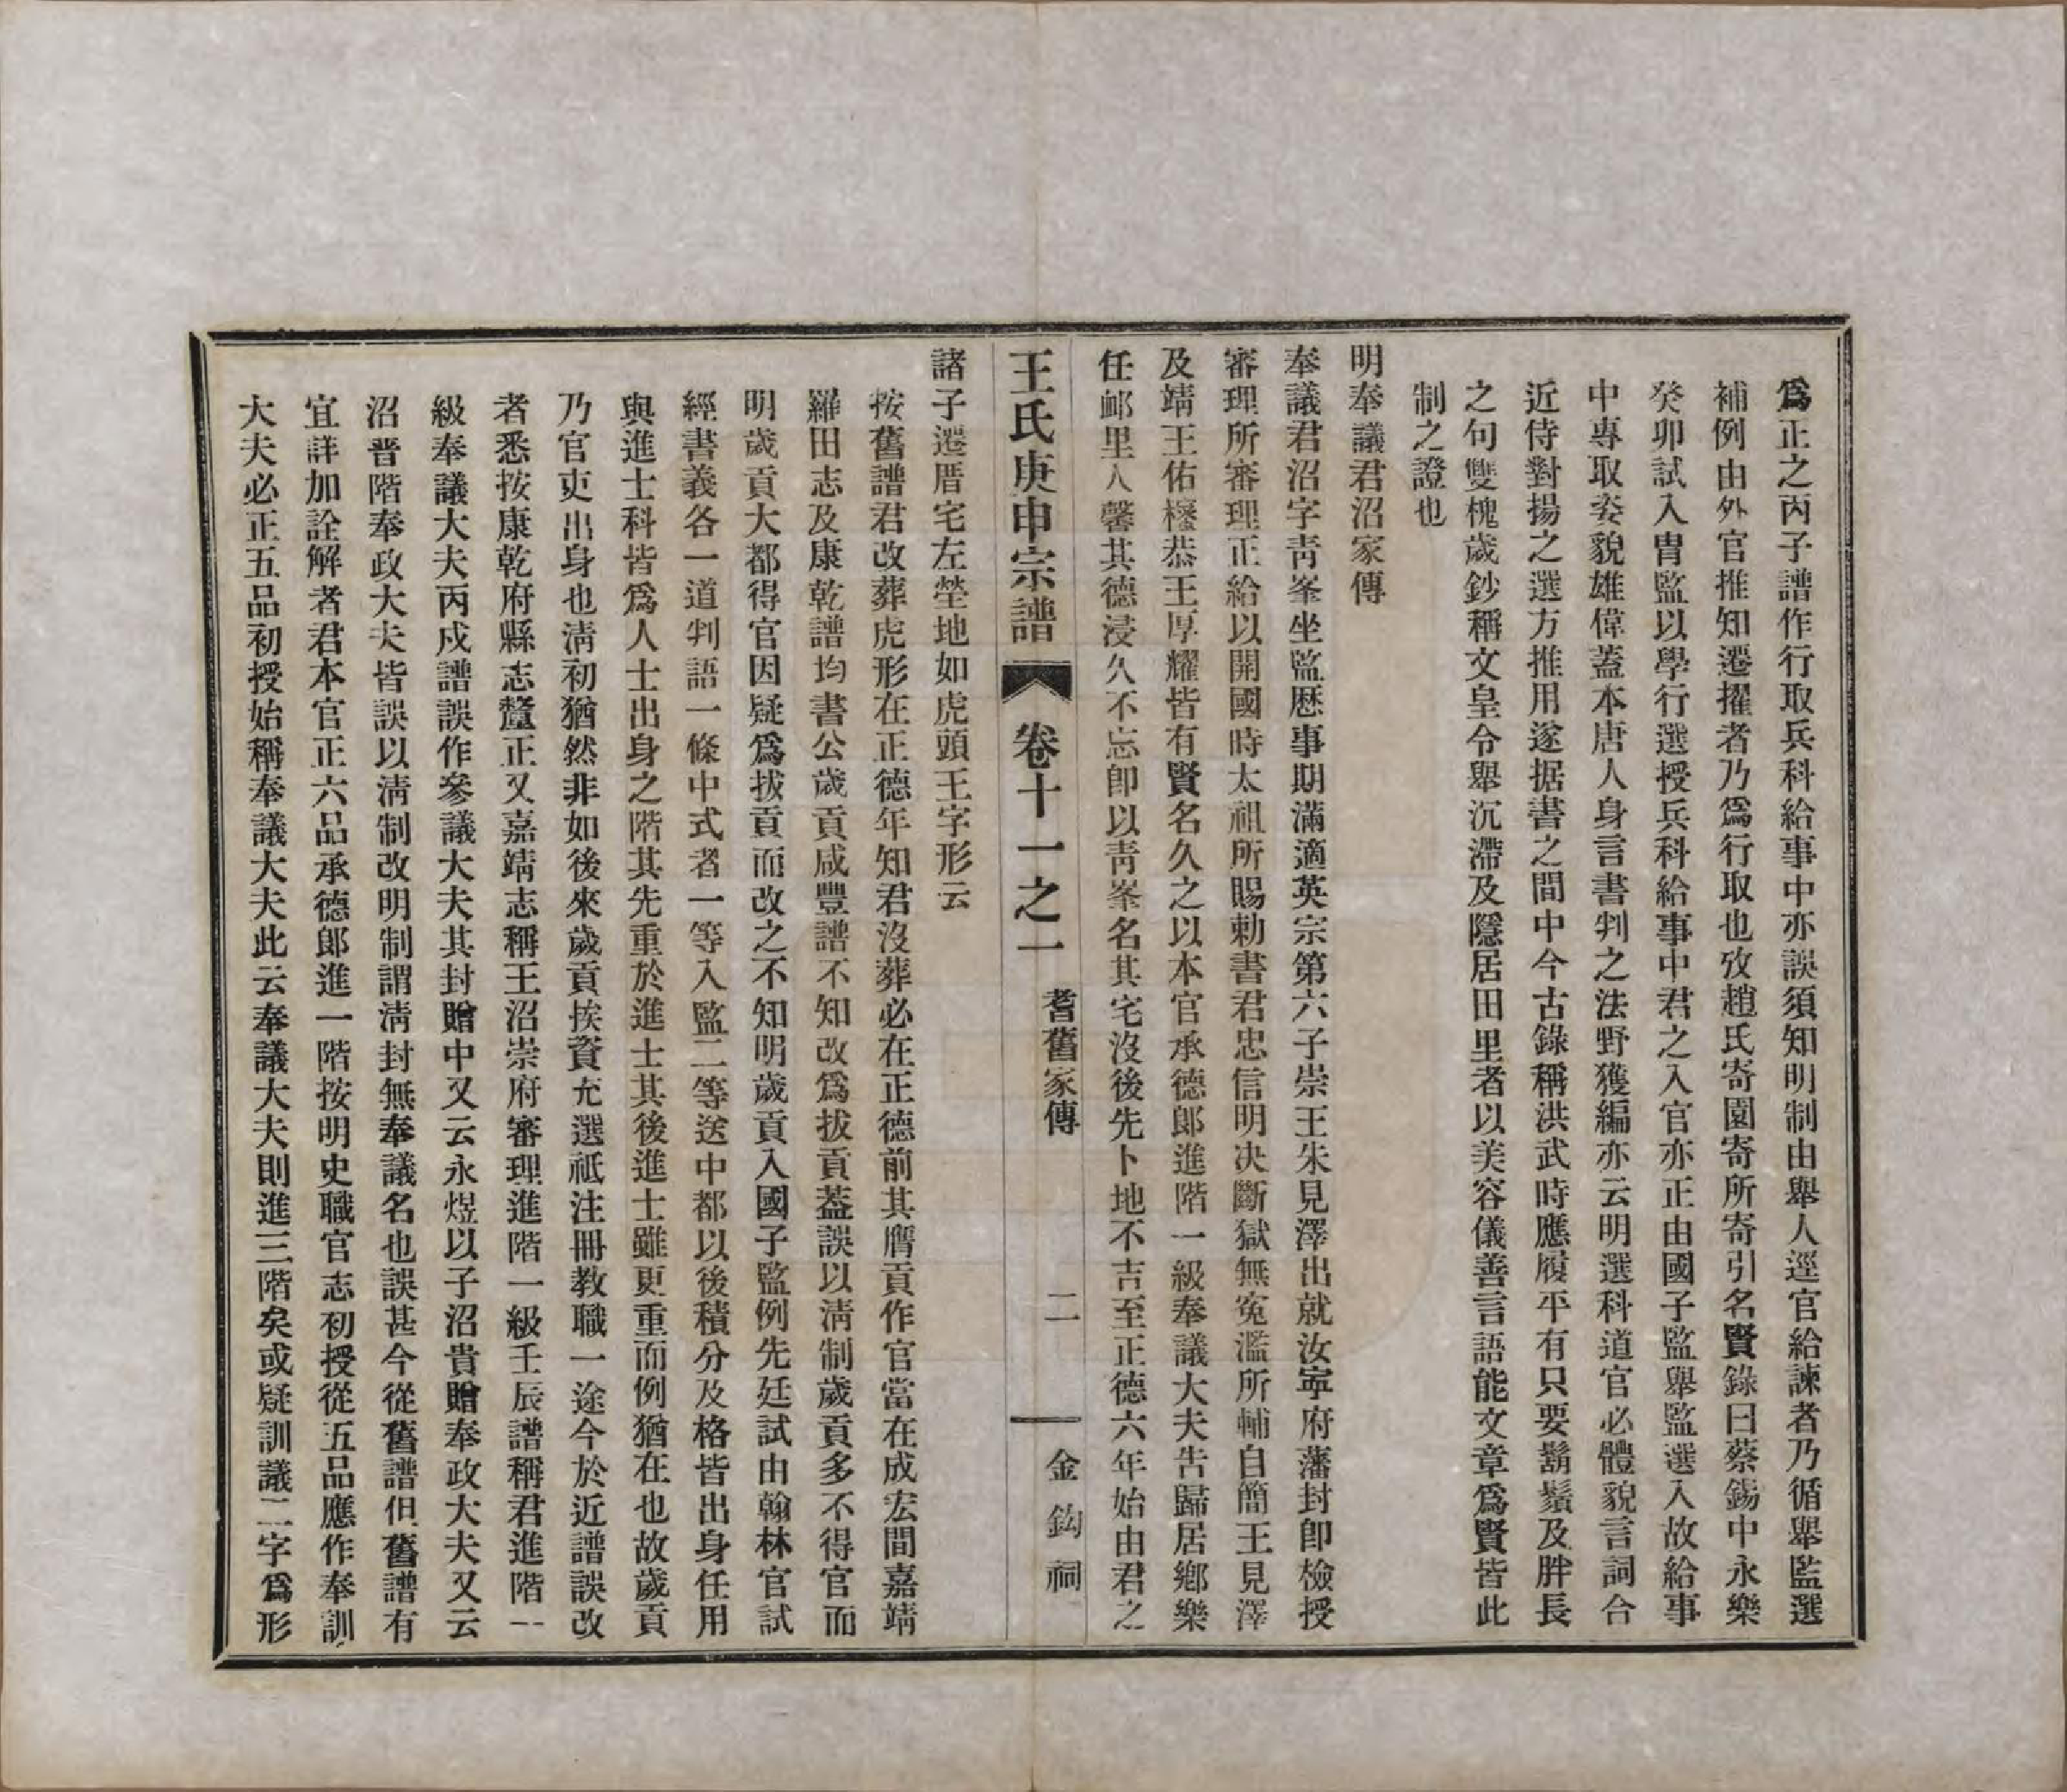 爲正之丙子譜作行取兵科給事中亦誤須知明制由舉人逕官給諫者乃循舉監選
補例由外官推知遷擢者乃爲行取也攷趙氏寄園寄所寄引名賢錄曰蔡錫中永樂
癸卯試入冑監以學行選授兵科給事中君之入官亦正由國子監舉監選入故給事
中專取姿貌雄偉蓋本唐人身言書判之法野獲編亦云明選科道官必體貌言詞合
近侍對揚之選方推用遂据書之間中今古錄稱洪武時應履平有只要鬍鬚及胖長
之句雙槐歲鈔稱文皇令舉沉滯及隱居田里者以美容儀善言語能文章爲賢皆此
制之證也
明奉議君沼家傳
奉議君沼字靑峯坐監歷事期滿適英宗第六子崇王朱見澤出就汝寧府藩封卽檢授
審理所審理正給以開國時太祖所賜勅書君忠信明決斷獄無寃濫所輔自簡王見澤
及靖王佑樒恭王厚耀皆有賢名久之以本官承德郎進階一級奉議大夫告歸居鄉樂
任邮里人馨其德浸久不忘卽以靑峯名其宅沒後先卜地不吉至正德六年始由君之
王氏庚申宗譜 卷十一之一 耆舊家傳 二 金鈎祠
諸子遷厝宅左塋地如虎頭王字形云
按舊譜君改葬虎形在正德年知君沒葬必在正德前其膺貢作官當在成宏間嘉靖
羅田志及康乾譜均書公歲貢咸豐譜不知改爲拔貢蓋誤以淸制歲貢多不得官而
明歲貢大都得官因疑爲拔貢而改之不知明歲貢入國子監例先廷試由翰林官試
經書義各一道判語一條中式者一等入監二等送中都以後積分及格皆出身任用
與進士科皆爲人士出身之階其先重於進士其後進士雖更重而例猶在也故歲貢
乃官吏出身也淸初猶然非如後來歲貢挨資充選祗注冊敎職一途今於近譜誤改
者悉按康乾府縣志釐正又嘉靖志稱王沼崇府審理進階一級壬辰譜稱君進階一
級奉議大夫丙戍譜誤作參議大夫其封贈中又云永煜以子沼貴贈奉政大夫又云
沼晋階奉政大夫皆誤以淸制改明制謂淸封無奉議名也誤甚今從舊譜但舊譜有
宜詳加詮解者君本官正六品承德郎進一階按明史職官志初授從五品應作奉訓
大夫必正五品初授始稱奉議大夫此云奉議大夫則進三階矣或疑訓議二字爲形